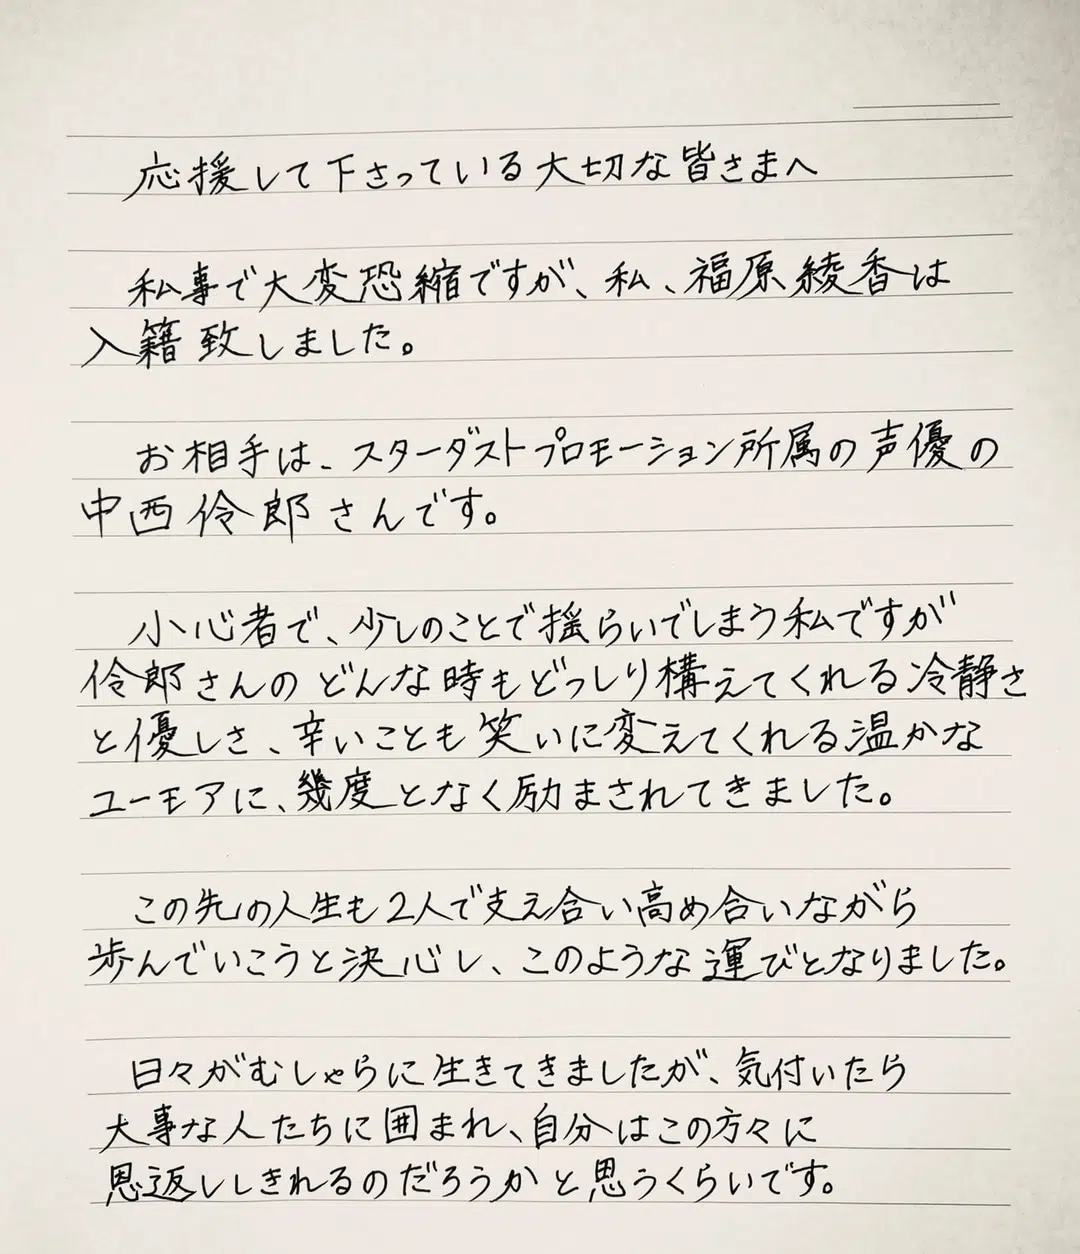 応援して下さっている大切な皆さまへ
私事で大変恐縮ですが、私、福原綾香は
入籍致しました。
お相手は、スターダストプロモーション所属の声優の
中西伶郎さんです。
小心者で、少しのことで揺らいでしまう私ですが
伶郎さんのどんな時もどっしり構えてくれる冷静さ
と優しさ、辛いことも笑いに変えてくれる温かな
ユーモアに、幾度となく励まされてきました。
この先の人生も2人で支え合い高め合いながら
歩んでいこうと決心し、このような運びとなりました。
日々がむしゃらに生きてきましたが、気付いたら
大事な人たちに囲まれ、自分はこの方々に
恩返ししきれるのだろうかと思うくらいです。